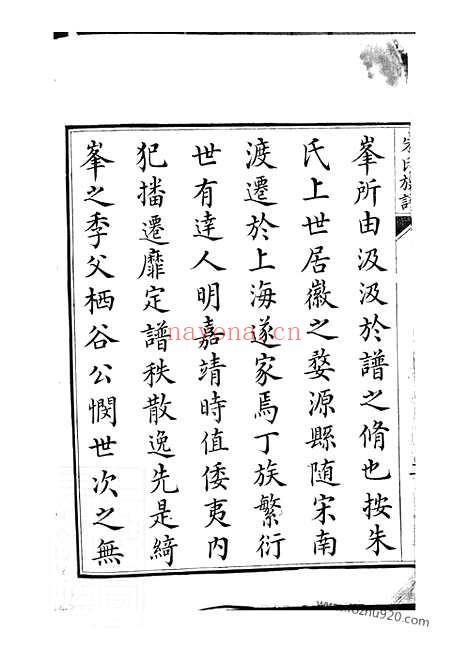 峯所由汲汲於譜之脩也按朱
氏上世居徽之婺源縣随宋南
渡遷於上海遂家焉丁族繁衍
世有達人明嘉靖時值倭夷内
犯播遷靡定譜秩散逸先是綺
峯之季父栖谷公憫世次之無
氏族譜
nayona.cn
www.fozhu920.com